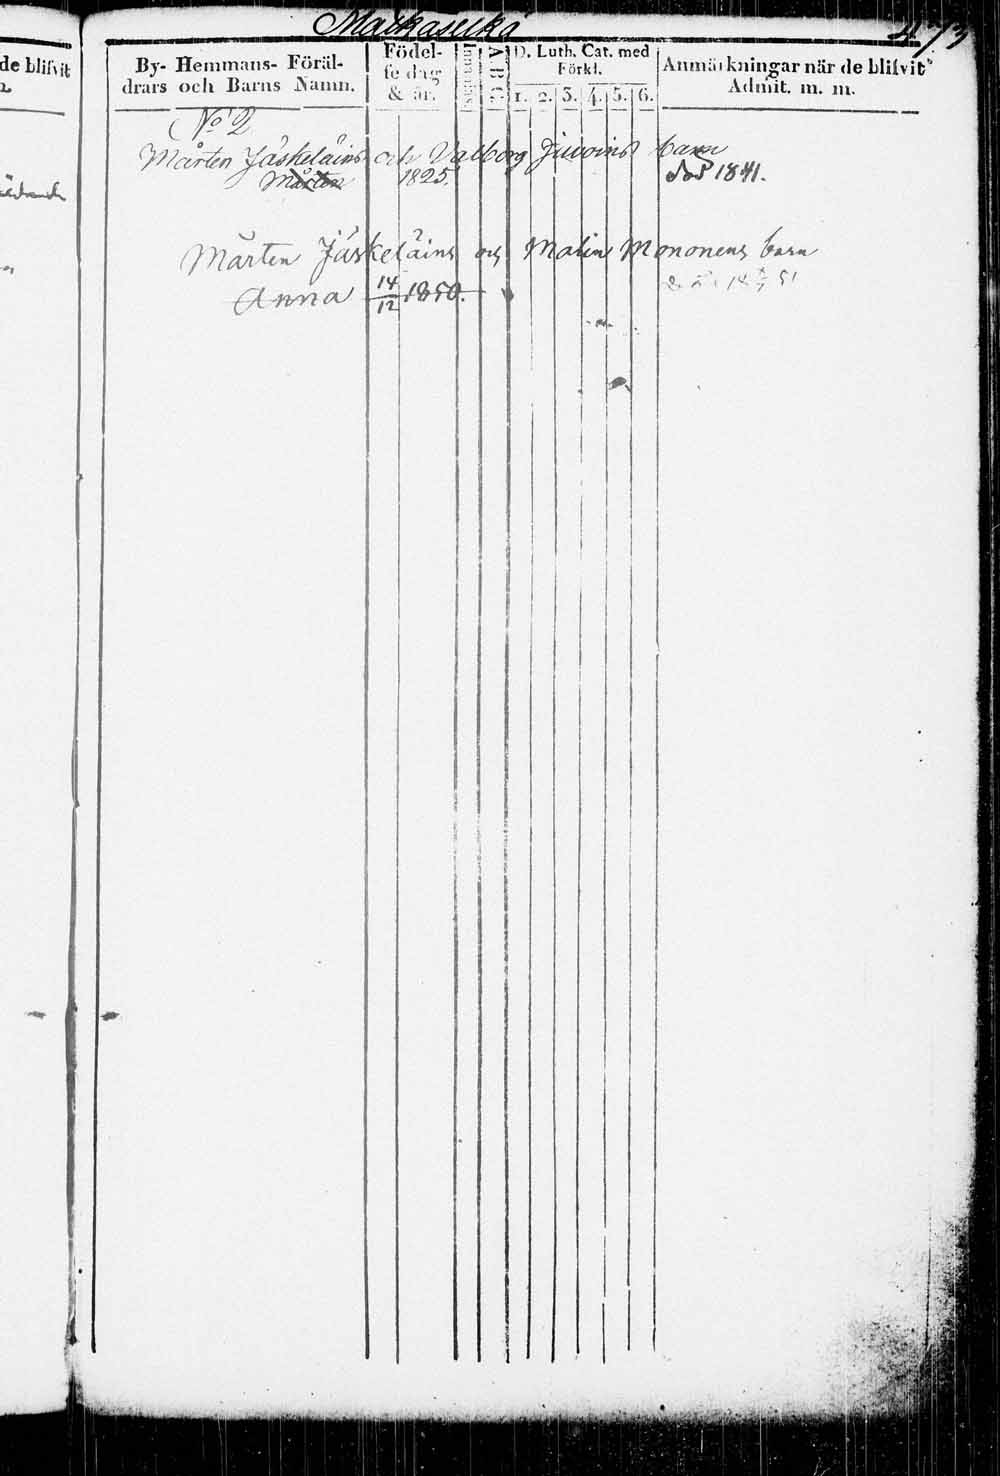 Matkaselkä
473
de bliſvit
By- Hemmans- Föräl-
drars och Barns Namn.
Födel-
ſe dag
& år.
Innanläsn.
A B C
D. Luth. Cat. med
Förkl.
1. 2. 3. 4. 5. 6.
Anmärkningar när de bliſvit
Admit. m. m.
No 2
Mårten Jäskeläins och Valborg Juvoins barn
Mårten 1825. död 1841.
Mårten Jäskeläins och Malin Mononens barn
Anna 14/12 1850.